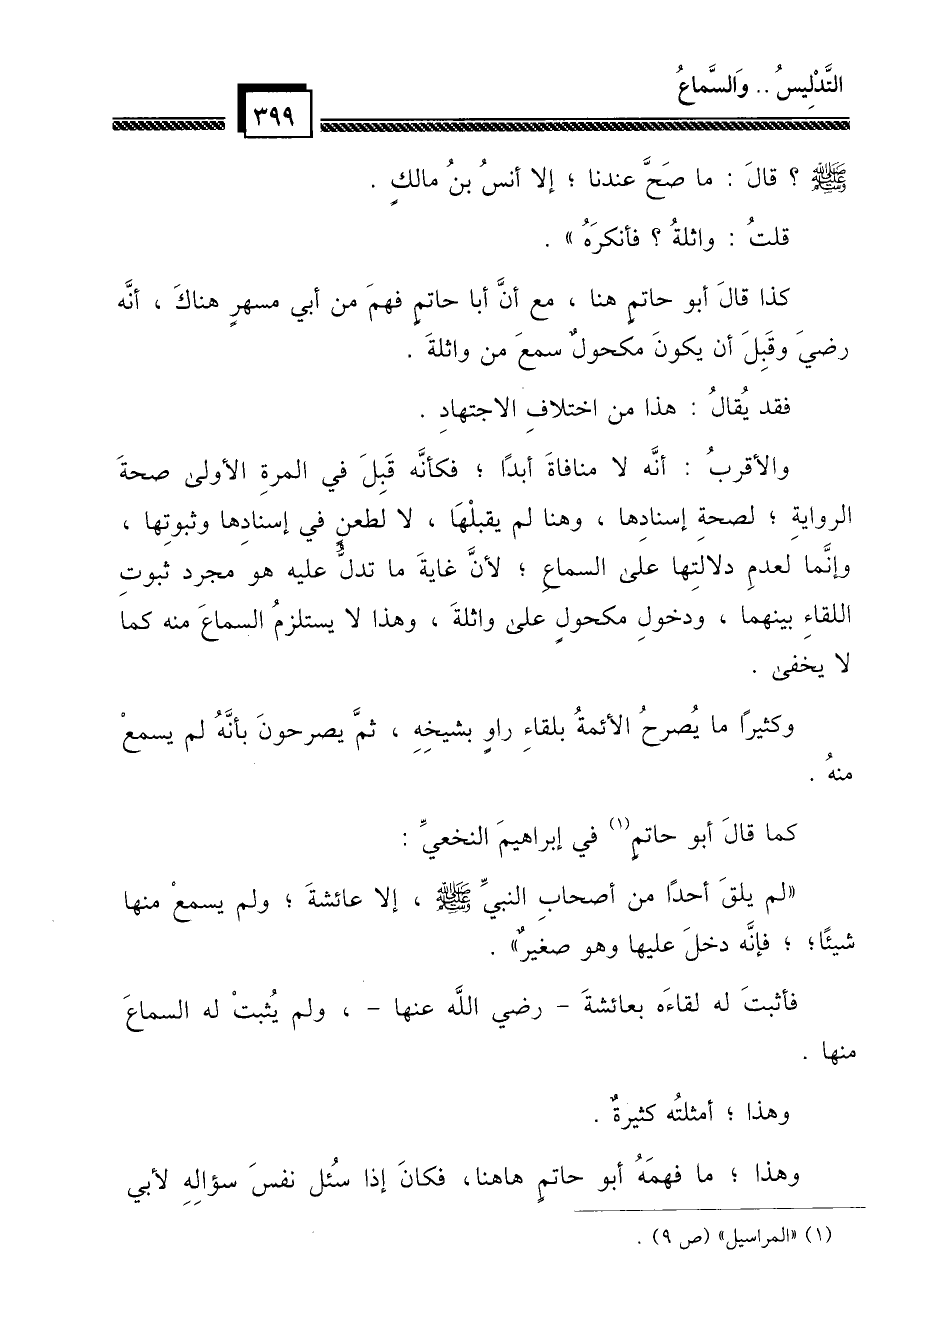 التَّدْلِيسُ .. وَالسَّماعُ
٣٩٩
ﷺ ؟ قالَ : ما صَحَّ عندنا ؛ إلا أنسُ بنُ مالكٍ .
قلتُ : واثلةُ ؟ فأنكرَهُ » .
كذا قالَ أبو حاتمٍ هنا ، مع أنَّ أبا حاتمٍ فهمَ من أبي مسهرٍ هناكَ ، أنَّه
رضيَ وقَبِلَ أن يكونَ مكحولٌ سمعَ من واثلةَ .
فقد يُقالُ : هذا من اختلافِ الاجتهادِ .
والأقربُ : أنَّه لا منافاةَ أبدًا ؛ فكأنَّه قَبِلَ في المرةِ الأولىٰ صحةَ
الروايةِ ؛ لصحةِ إسنادِها ، وهنا لم يقبلْهَا ، لا لطعنٍ في إسنادِها وثبوتِها ،
وإنَّما لعدمِ دلالتِها علىٰ السماعِ ؛ لأنَّ غايةَ ما تدلُّ عليه هو مجرد ثبوتِ
اللقاءِ بينهما ، ودخولِ مكحولٍ علىٰ واثلةَ ، وهذا لا يستلزمُ السماعَ منه كما
لا يخفىٰ .
وكثيرًا ما يُصرحُ الأئمةُ بلقاءِ راوٍ بشيخِهِ ، ثمَّ يصرحونَ بأنَّهُ لم يسمعْ
منهُ .
كما قالَ أبو حاتمٍ(١) في إبراهيمَ النخعيِّ :
«لم يلقَ أحدًا من أصحابِ النبيِّ ﷺ ، إلا عائشةَ ؛ ولم يسمعْ منها
شيئًا؛ ؛ فإنَّه دخلَ عليها وهو صغيرٌ» .
فأثبتَ له لقاءَه بعائشةَ - رضي اللَّه عنها - ، ولم يُثبتْ له السماعَ
منها .
وهذا ؛ أمثلتُه كثيرةٌ .
وهذا ؛ ما فهمَهُ أبو حاتمٍ هاهنا، فكانَ إذا سُئل نفسَ سؤالِهِ لأبي
(١) «المراسيل» (ص ٩) .